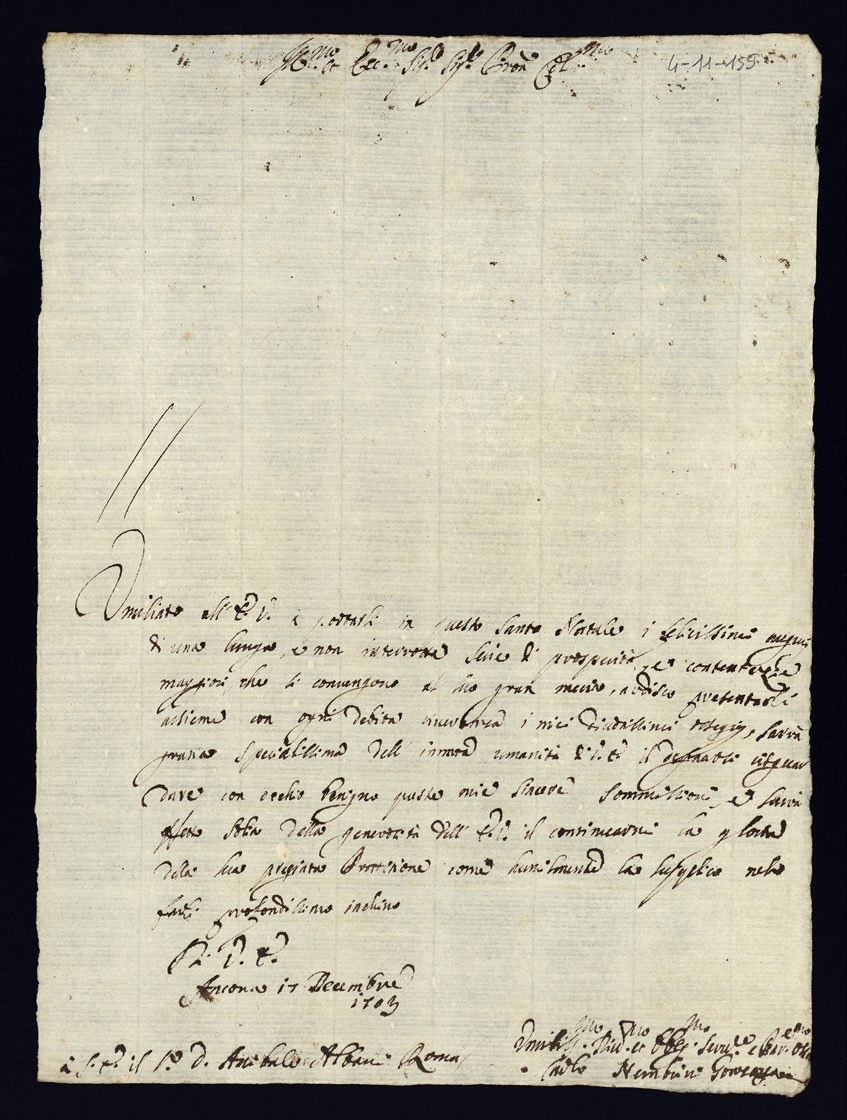 Ill.mo et Ecc.mo Sig.r Sig.r Pron Col.mo
4-11-155
Umiliato all'E. V. a portarli in questo Santo Natale i felicissimi augurii
di una lunga, e non interrotta serie di prosperità, e contentezze
maggiori che si convengono al suo gran merito, ardisco presentarli
assieme con ogni debita riverenza i miei ossequij, sarrà
grazia specialissima dell' innata umanità di V. E. il degnarsi risguar
dare con occhio benigno queste mie sincere sommissioni, e sarrà
effetto della generosità dell' E. V. il continuarmi la
della sua pregiata Protezione come humilmente la supplico nel
farli profondissimo inchino
Di V. E.
Ancona 17 Decembre
1703
à S. E. il S.r D. Anibale Albani Roma
Umiliss.mo Div.mo et Obblig.mo Serv.re
Carlo